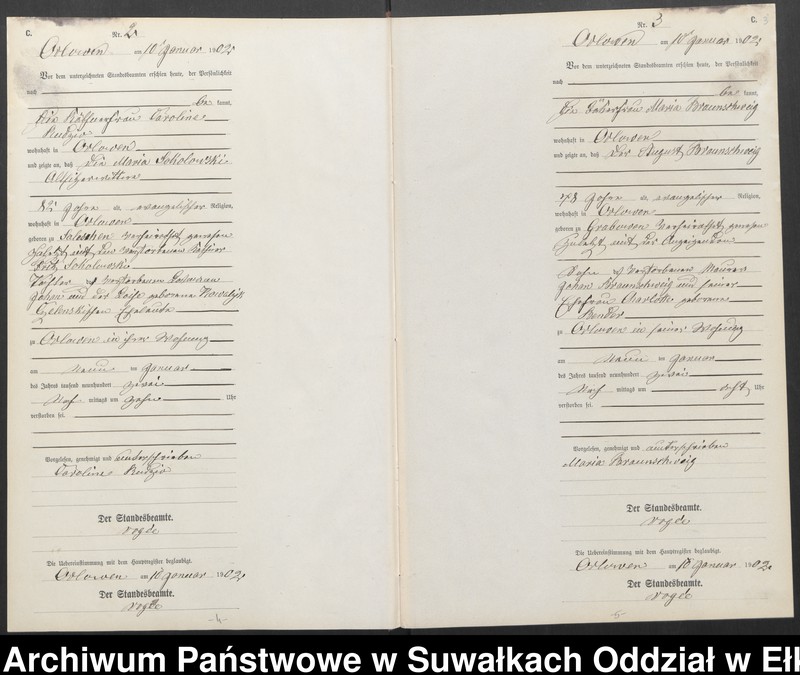 C.
Nr. 2
Orlowen am 10 Januar 1902
Vor dem unterzeichneten Standesbeamten erschien heute, der Persönlichkeit
nach
be kannt,
die Käthnerfrau Caroline
Rudzio
wohnhaft in Orlowen
und zeigte an, daß die Maria Sokolowski
Altsitzerwittwe
82 Jahre evangelischer Religion,
wohnhaft in Orlowen
geboren zu verheirathet gewesen
zuletzt mit dem verstorbenen Käthner
Fritz Sokolowski
Tochter verstorbenen
Johann und der geborene
Eheleute
zu Orlowen in ihrer Wohnung
am neun ten Januar
des Jahres tausend neunhundert zwei
Nach mittags um zehn Uhr
verstorben sei.
Vorgelesen, genehmigt und unterschrieben
Caroline Rudzio
Der Standesbeamte.
Die Uebereinstimmung mit dem Hauptregister beglaubigt.
Orlowen am 10 Januar 1902
Der Standesbeamte.
-4-
Nr. 3
C. 3
Orlowen am 10 Januar 1902
Vor dem unterzeichneten Standesbeamten erschien heute, der Persönlichkeit
nach
be kannt,
die Maria Braunschweig
wohnhaft in Orlowen
und zeigte an, daß der August Braunschweig
78 Jahre evangelischer Religion,
wohnhaft in Orlowen
geboren zu Grabowen verheirathet gewesen
zuletzt mit der Anzeigenden
Sohn verstorbenen Maurer
Johann Braunschweig und seiner
Ehefrau Charlotte geborene
zu Orlowen in seiner Wohnung
am neun ten Januar
des Jahres tausend neunhundert zwei
Nach mittags um acht Uhr
verstorben sei.
Vorgelesen, genehmigt und unterschrieben
Maria Braunschweig
Der Standesbeamte.
Die Uebereinstimmung mit dem Hauptregister beglaubigt.
Orlowen am 10 Januar 1902
Der Standesbeamte.
-5-
Archiwum Państwowe w Suwałkach Oddział w Ełk